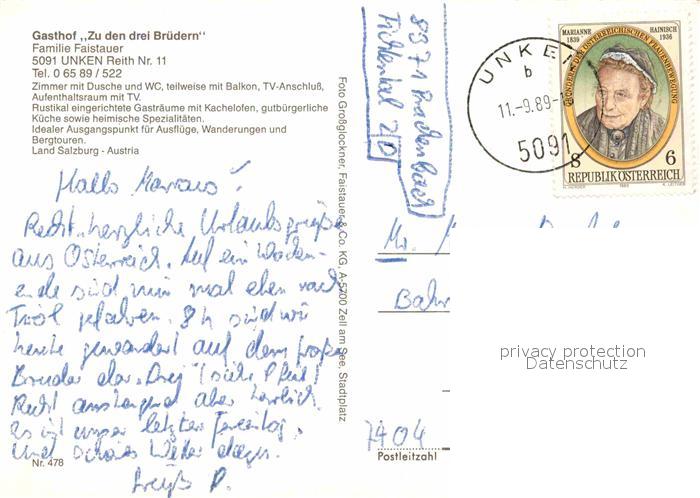 Gasthof ,,Zu den drei Brüdern"
Familie Faistauer
5091 UNKEN Reith Nr. 11
Tel. 0 65 89 / 522
Zimmer mit Dusche und WC, teilweise mit Balkon, TV-Anschluß,
Aufenthaltsraum mit TV.
Rustikal eingerichtete Gasträume mit Kachelofen, gutbürgerliche
Küche sowie heimische Spezialitäten.
Idealer Ausgangspunkt für Ausflüge, Wanderungen und
Bergtouren.
Land Salzburg - Austria
Hallo
Recht herzliche Urlaubsgrüße
aus Österreich. Auf ein Wochen-
ende sind wir mal eben nach
Tirol gefahren. 8 h sind wir
heute gewandert auf dem großen
Bruder der "Drei" (siehe Pfeil)
Recht anstrengend aber herrlich.
Es ist unser letzter Ferientag,
und schönes Wetter
Nr. 478
Foto Großglockner, Faistauer & Co. KG, A-5700 Zell am See, Stadtplatz
UNKEN
b
11.-9.89-
5091
MARIANNE HAINISCH
1839 1936
GRÜNDERIN DER ÖSTERREICHISCHEN FRAUENBEWEGUNG
S 6
REPUBLIK ÖSTERREICH
7404
Postleitzahl
privacy protection
Datenschutz